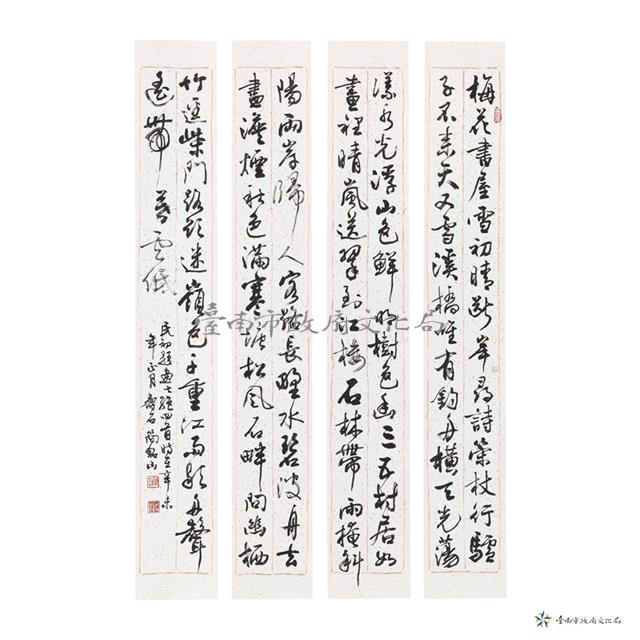 梅花書屋雪初晴斷岸尋詩策杖行驢
子不來天又雪溪橋唯有釣舟橫天光蕩
漾水光浮山色鮮明樹色幽三五村居如
畫裡晴嵐送翠到江樓石林帶雨掩斜
陽兩岸歸人客路長野水碧波舟去
盡漠煙秋色滿寒塘松風石畔問幽栖
竹逕柴門路欲迷嶺色千重江南於舟聲
遙帶暮雲低
民初題畫七絕四首時在辛未
年正月 壽石 簡銘山
臺南市政府文化局
臺南市政府文化局